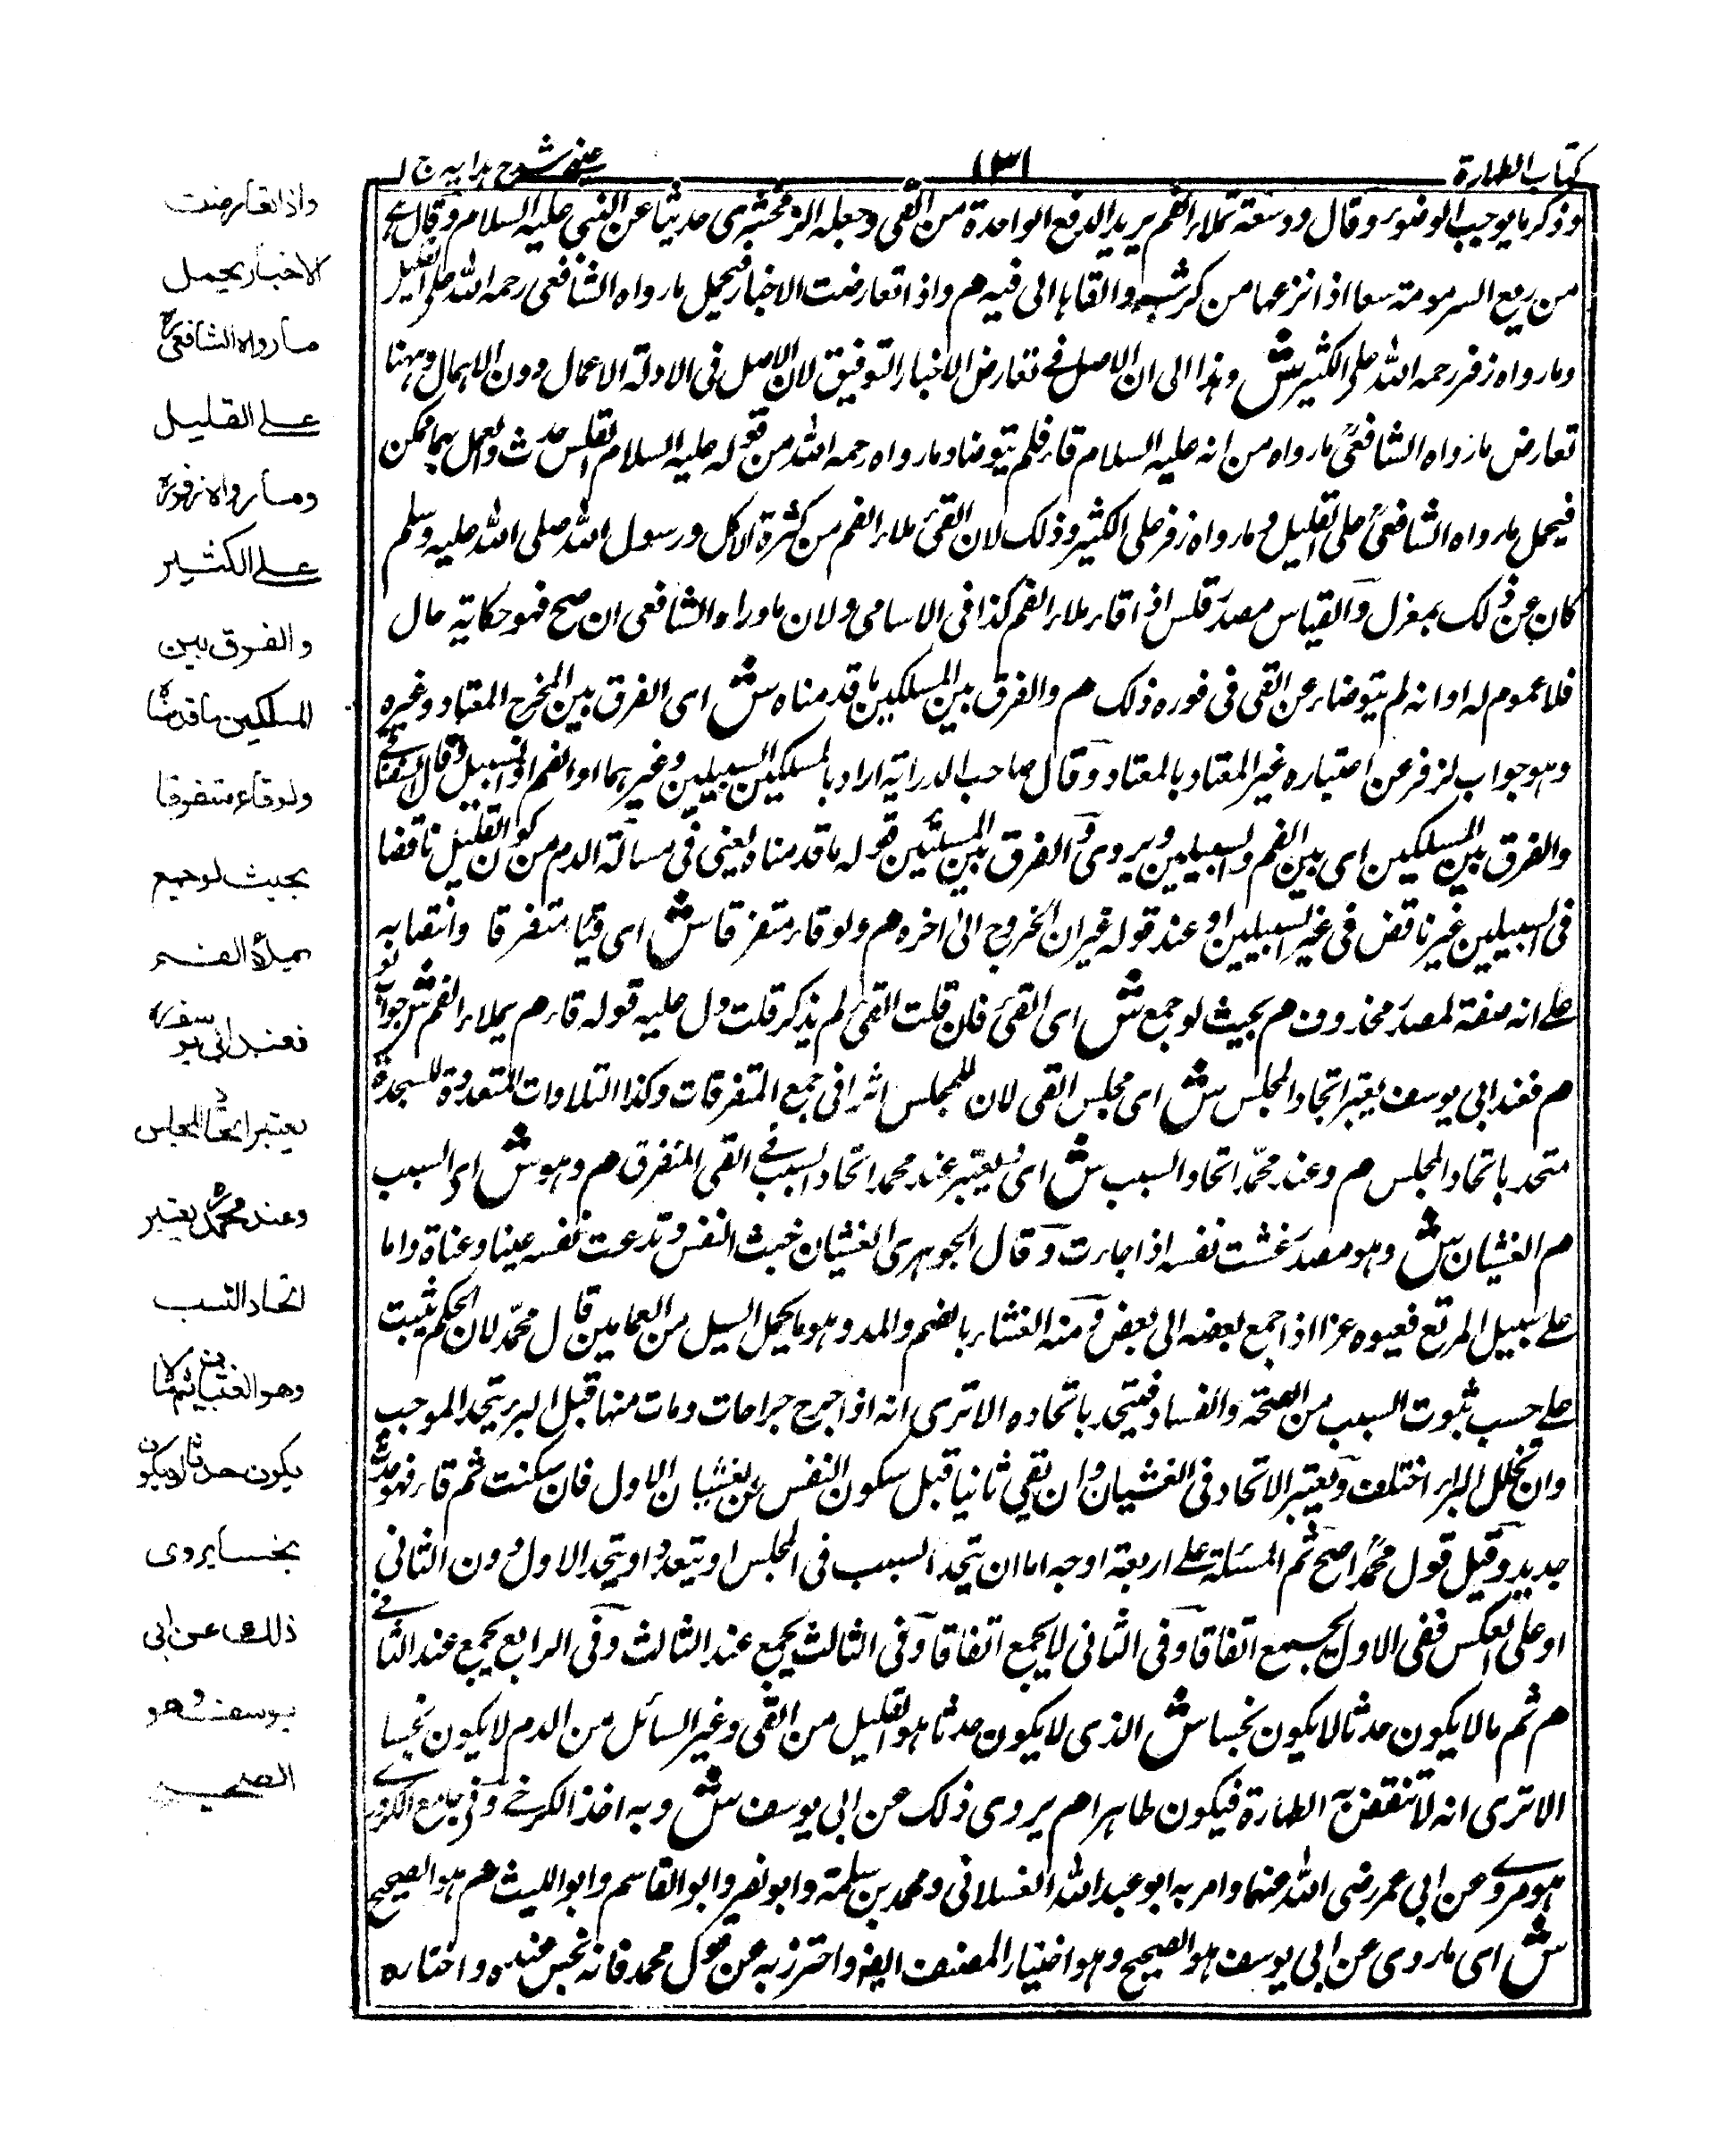 كتاب الطهارة
١٣١
عينى شرح هدايه ج ١
وذكر ما يوجب الوضوء وقال ودسعة تملاء الفم يريد الدفع الواحدة من القى وجعله الزمخشرى حديثا عن النبى عليه السلام وقال هى
من دسع البعير سعا اذا نزعها من كرشه والقاها الى فيه م واذا تعارضت الاخبار فيحمل ما رواه الشافعى رحمه الله على القليل
وما رواه زفر رحمه الله على الكثير ش وهذا الى ان الاصل فى تعارض الاخبار التوفيق لان الاصل فى الادلة الاعمال دون الاهمال وههنا
تعارض ما رواه الشافعىؒ ما رواه من انه عليه السلام قاء فلم يتوضاء وما رواه رحمه الله من قوله عليه السلام القلس حدث والعمل بهما ممكن
فيحمل ما رواه الشافعىؒ على القليل وما رواه زفر على الكثير وذلك لان القئ ملاء الفم من كثرة الاكل ورسول الله صلى الله عليه وسلم
كان عن ذلك بمعزل والقياس مصدر قلس اذا قاء ملاء الفم كذا فى الاسامى ولان ما وراه الشافعى ان صح فهو حكاية حال
فلا عموم له او انه لم يتوضاء عن القى فى فوره ذلك م والفرق بين المسلكين ما قدمناه ش اى الفرق بين المخرج المعتاد وغيره
وهو جواب لزفر عن اعتباره غير المعتاد بالمعتاد وقال صاحب الدراية اراد بالمسلكين السبيلين وغيرهما او الفم والسبيل وقال السغناقى
والفرق بين المسلكين اى بين الفم والسبيلين ويروى والفرق بين المسئلتين قوله ما قدمناه يعنى فى مسالة الدم من كون القليل ناقضا
فى السبيلين غير ناقض فى غير السبيلين او عند قوله غير ان الخروج الى اخره م ولو قاء متفرقا ش اى قيئا متفرقا وانتصابه
على انه صفة لمصدر محذوف م بحيث لو جمع ش اى القئ فان قلت القئ لم يذكر قلت دل عليه قوله قاء م يملاء الفم ش جواب لو
م فعند ابى يوسف يعتبر اتحاد المجلس ش اى مجلس القى لان للمجلس اثرا فى جمع المتفرقات وكذا التلاوات المتعددة للسجدة
متحد باتحاد المجلس م وعند محمد اتحاد السبب ش اى ويعتبر عند محمد اتحاد السبب فى القى المتفرق م وهو ش اى السبب
م الغثيان ش وهو مصدر غثت نفسه اذا جاءت وقال الجوهرى الغثيان خبث النفس وقد غثت نفسه غيثا وغثاة واما
على سبيل المرتع فغيوه عزا اذا جمع بعضه الى بعض ومنه الغثاء بالضم والمد وهو ما يحمل السيل من العمامين قال محمد لان الحكم يثبت
على حسب ثبوت السبب من الصحة والفساد فيتحد باتحاده الا ترى انه اذا جرح جراحات ومات منها قبل البرء يتحد الموجب
وان تخلل البرء اختلف ويعتبر الاتحاد فى الغثيان وان يقى ثانيا قبل سكون النفس عن الغثيان الاول فان سكنت ثم قاء فهو حدث
جديد وقيل قول محمدؒ اصح ثم المسئلة على اربعة اوجه اما ان يتحد السبب فى المجلس او يتعدد او يتحد الاول دون الثانى
او على العكس ففى الاول يجمع اتفاقا وفى الثانى لا يجمع اتفاقا وفى الثالث يجمع عند الثالث وفى الرابع يجمع عند الثانى
م ثم ما لا يكون حدثا لا يكون نجسا ش الذى لا يكون حدثا هو القليل من القئ وغير السائل من الدم لا يكون نجسا
الا ترى انه لا تنتقض به الطهارة فيكون طاهرا م يروى ذلك عن ابى يوسف ش وبه اخذ الكرخى وفى جامع الكردرى
هو مروى عن ابى عمر رضى الله عنهما وامر به ابو عبد الله الغسلانى ومحمد بن سلمة وابو نصر وابو القاسم وابو الليث م هو الصحيح
ش اى ما روى عن ابى يوسف هو الصحيح وهو اختيار المصنف ايضا واحترز به عن قول محمد فانه نجس عنده واختاره
واذا تعارضت
الاخبار يحمل
ما رواه الشافعىؒ
على القليل
وما رواه زفرؒ
على الكثير
والفرق بين
المسلكين ما قدمناه
ولو قاء متفرقا
بحيث لو جمع
يملأ الفم
فعند ابى يوسفؒ
يعتبر اتحاد المجلس
وعند محمدؒ يعتبر
اتحاد السبب
وهو الغثيان ثم ما لا
يكون حدثا لا يكون
نجسا يروى
ذلك عن ابى
يوسف وهو
الصحيح